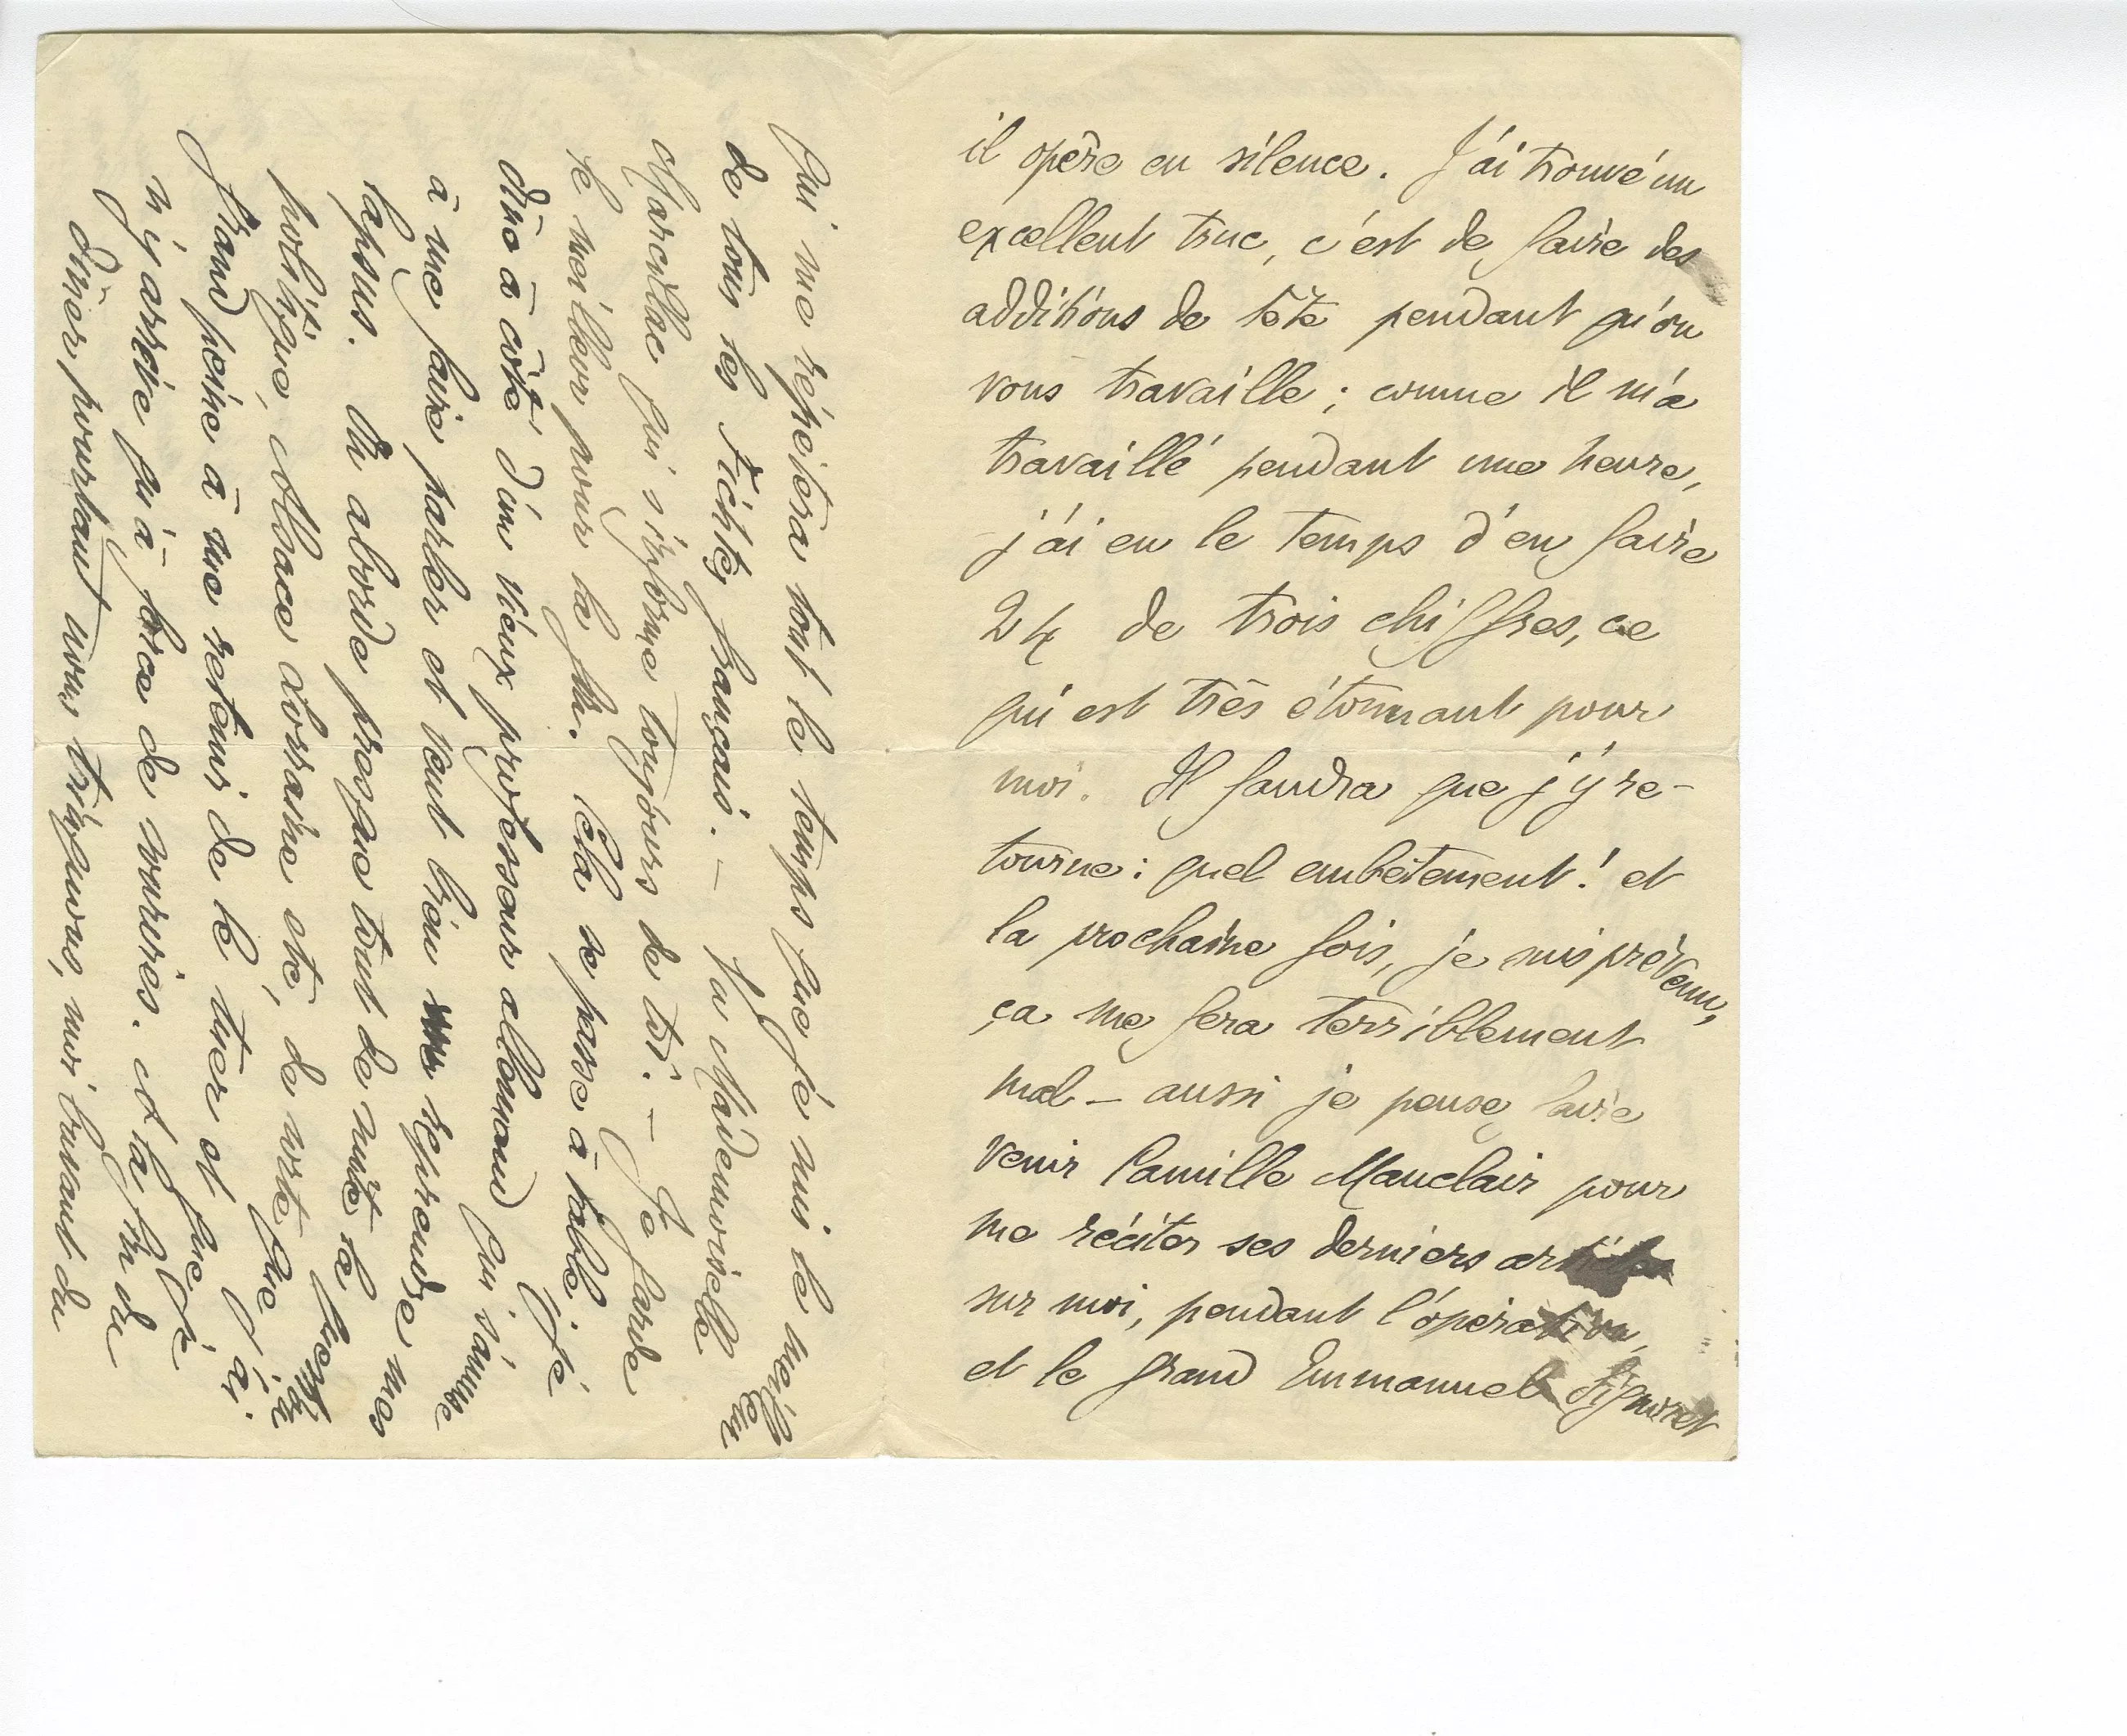 il opère en silence. J'ai trouvé un
excellent truc, c'est de faire des
additions de tête pendant qu'on
vous travaille ; comme il m'a
travaillé pendant une heure,
j'ai eu le temps d'en faire
24 de trois chiffres, ce
qui est très étonnant pour
moi. Il faudra que j'y re-
tourne : quel embêtement ! et
la prochaine fois, je suis prévenu,
ça me fera terriblement
mal – aussi je pense faire
venir Camille Mauclair pour
me réciter ses derniers articles
sur moi, pendant l'opération,
et le grand Emmanuel Signoret
qui me répétera tout le temps que je suis le meilleur
de tous les Fichtes français. – La Mademoiselle
Marcillac qui s'informe toujours de toi. – Je garde
le meilleur pour la fin. Cela se passe à table. Je
dîne à côté d'un vieux professeur allemand qui s'amuse
à me faire parler et veut bien reprendre mes
lapsus. On aborde presque tout de suite la question
politique, Alsace Lorraine etc, de sorte que j'ai
grand peine à me retenir de le tuer et que je
n'y arrive qu'à force de sourires. À la fin du
dîner pourtant nous trinquons, moi buvant du